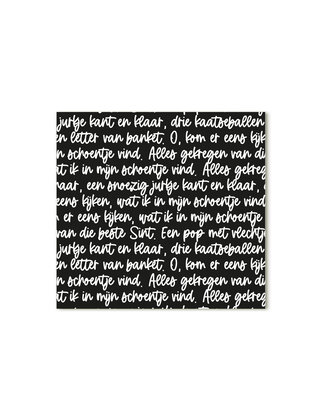 jurkje kant en klaar, drie kaatseballen
en letter van banket. O, kom er eens kijk
n schoentje vind. Alles gekregen van di
t ik in mijn schoentje vind. Alles gekreg
haar, een snoezig jurkje kant en klaar,
eens kijken, wat ik in mijn schoentje vind
er eens kijken, wat ik in mijn schoentje
van die beste Sint. Een pop met vlechtj
jurkje kant en klaar, drie kaatseballen
en letter van banket. O, kom er eens kijk
n schoentje vind. Alles gekregen van di
at ik in mijn schoentje vind. Alles gekreg